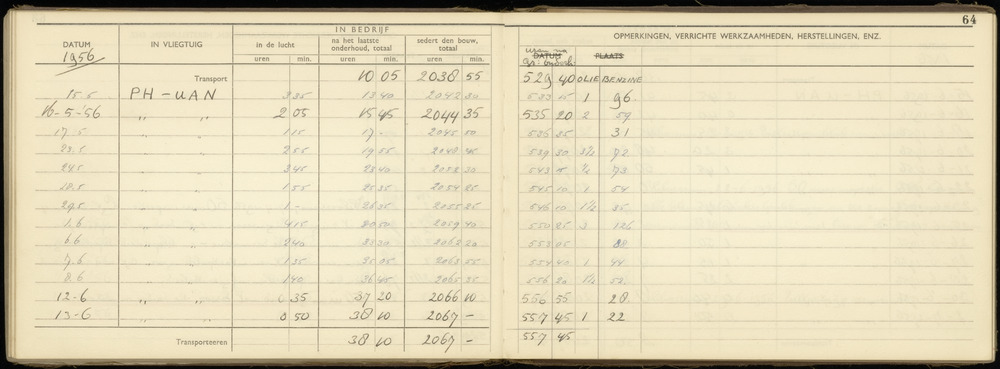 64
IN BEDRIJF
DATUM IN VLIEGTUIG in de lucht na het laatste onderhoud, totaal sedert den bouw, totaal OPMERKINGEN, VERRICHTE WERKZAAMHEDEN, HERSTELLINGEN, ENZ.
1956 uren min. uren min. uren min. DATUM PLAATS
Transport 10 05 2038 55 529 40 OLIE BENZINE
15.5 PH-UAN 3 35 13 40 2042 30 533 15 1 96
16-5-'56 " " 2 05 15 45 2044 35 535 20 2 59
17.5 " " 1 15 17 - 2045 50 536 35 31
23.5 " " 2 55 19 55 2048 45 539 30 72
24.5 " " 3 45 23 40 2052 30 543 15 73
" " 1 55 25 35 2054 25 545 10 1 54
29.5 " " 1 - 26 35 2055 25 546 10 1½ 35
1.6 " " 4 15 30 50 2059 40 550 25 3 126
6.6 " " 2 40 33 30 2062 20 553 05 88
7.6 " " 1 35 35 05 2063 55 554 40 1 44
8.6 " " 1 40 36 45 2065 35 556 20 52
12-6 " " 0 35 37 20 2066 10 556 55 28
13-6 " " 0 50 38 10 2067 - 557 45 1 22
Transporteeren 38 10 2067 - 557 45